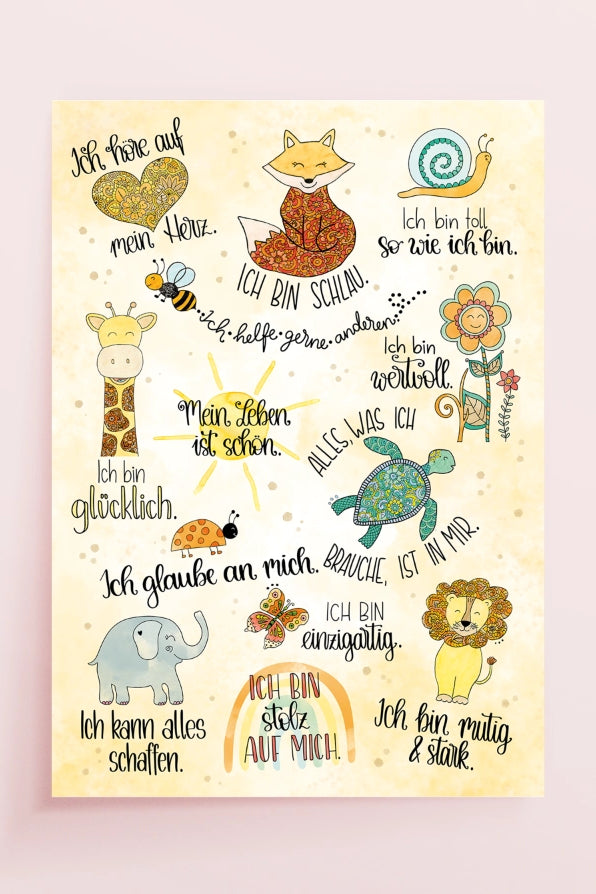 Ich höre auf
mein Herz.
ICH BIN SCHLAU.
Ich bin toll
so wie ich bin.
Ich helfe gerne anderen
Ich bin
wertvoll.
Mein Leben
ist schön.
Ich bin
glücklich.
ALLES, WAS ICH
BRAUCHE, IST IN MIR.
Ich glaube an mich.
ICH BIN
einzigartig.
Ich kann alles
schaffen.
ICH BIN
stolz
AUF MICH.
Ich bin mutig
& stark.